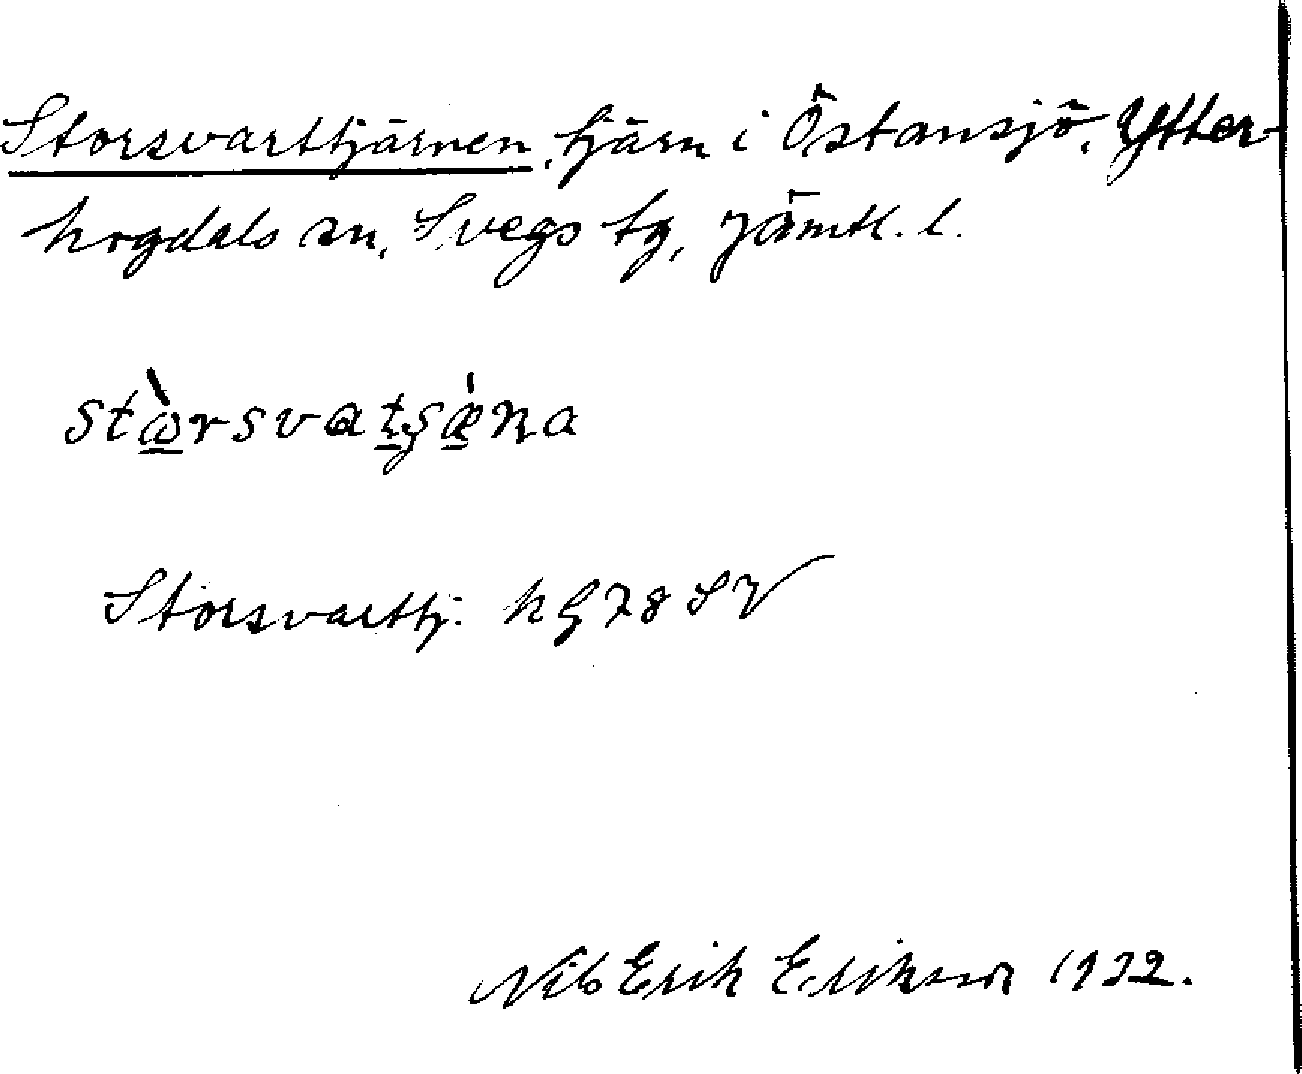 Storsvarttjärnen, tjärn i Östansjö, Ytter-
hogdals sn, Svegs tg, Jämtl. l.
stὼ̲rsvat̲ʂæ̲̍ɳa
Storsvarttj. kG78SV
Nils Erik Eriksson 1932.